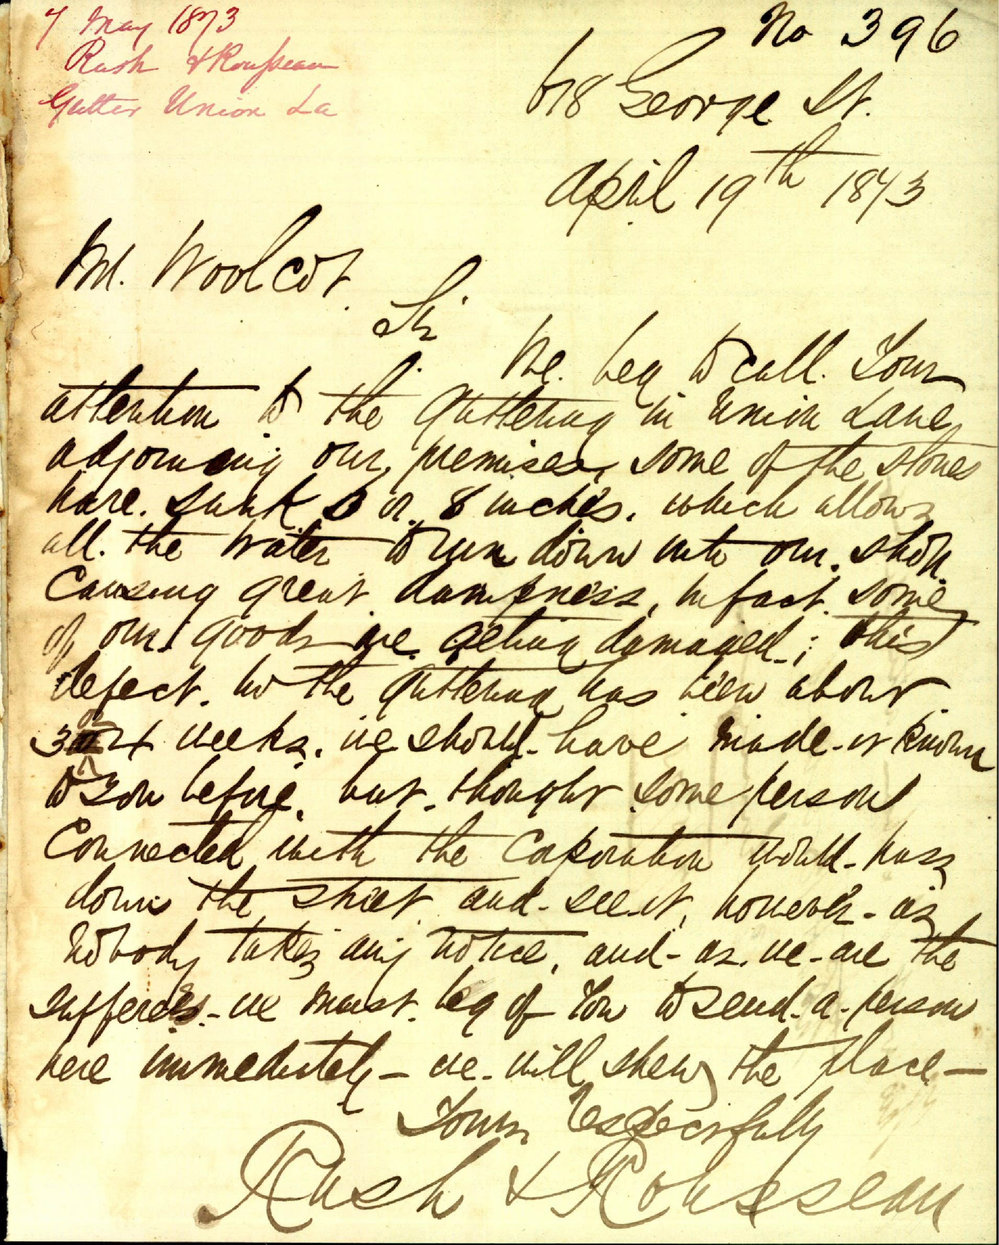 7 May 1873
Rush & Rousseau
Gutter Union La
No 396
618 George St.
April 19th 1873
Mr. Woolcot.
Sir
We. beg to call. Your
attention to the guttering in Union Lane
adjoining our premises, some of the stones
have. sunk or 8 inches. which allows
all. the water to run down into our. shop.
Causing great dampness, in fact. some
of our goods are getting damaged; this
defect. in the guttering has been about
3 or 4 weeks. we should have made it known
to You before. but. thought some person
Connected with the Corporation would pass
down the street and see it, however as
Nobody takes any notice, and as. we are the
sufferers we must. beg of You to send a person
here immediately — we. will shew the place —
Yours Respectfully
Rush & Rousseau